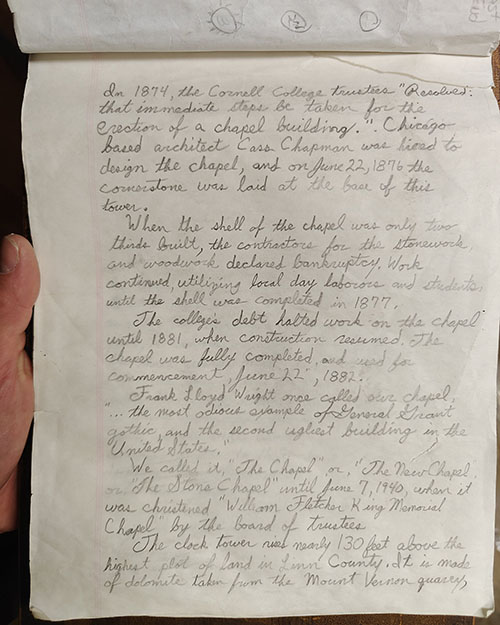 In 1874, the Cornell College trustees "Resolved:
that immediate steps be taken for the
erection of a chapel building.". Chicago
based architect Cass Chapman was hired to
design the chapel, and on June 22, 1876 the
cornerstone was laid at the base of this
tower.
When the shell of the chapel was only two
thirds built, the contractors for the stonework,
and woodwork declared bankruptcy. Work
continued, utilizing local day laborors and students
until the shell was completed in 1877.
The college's debt halted work on the chapel
until 1881, when construction resumed. The
chapel was fully completed, and used for
commencement, June 22, 1882.
Frank Lloyd Wright once called our chapel,
"... the most odious example of General Grant
gothic, and the second ugliest building in the
United States."
We called it, "The Chapel" or, "The New Chapel"
or, "The Stone Chapel" until June 7, 1940, when it
was christened "William Fletcher King Memorial
Chapel" by the board of trustees
The clock tower rises nearly 130 feet above the
highest plot of land in Linn County. It is made
of dolomite taken from the Mount Vernon quarry,